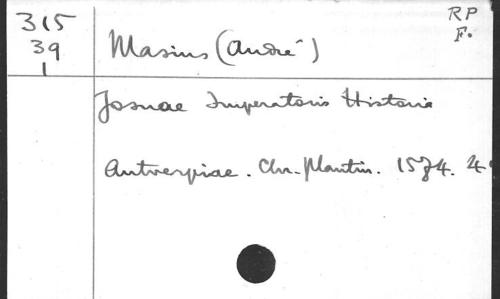 315 RP
39 Masius (André) F.
1
Josuae Imperatoris Historia
Antverpiae. Chr. Plantin. 1574. 4